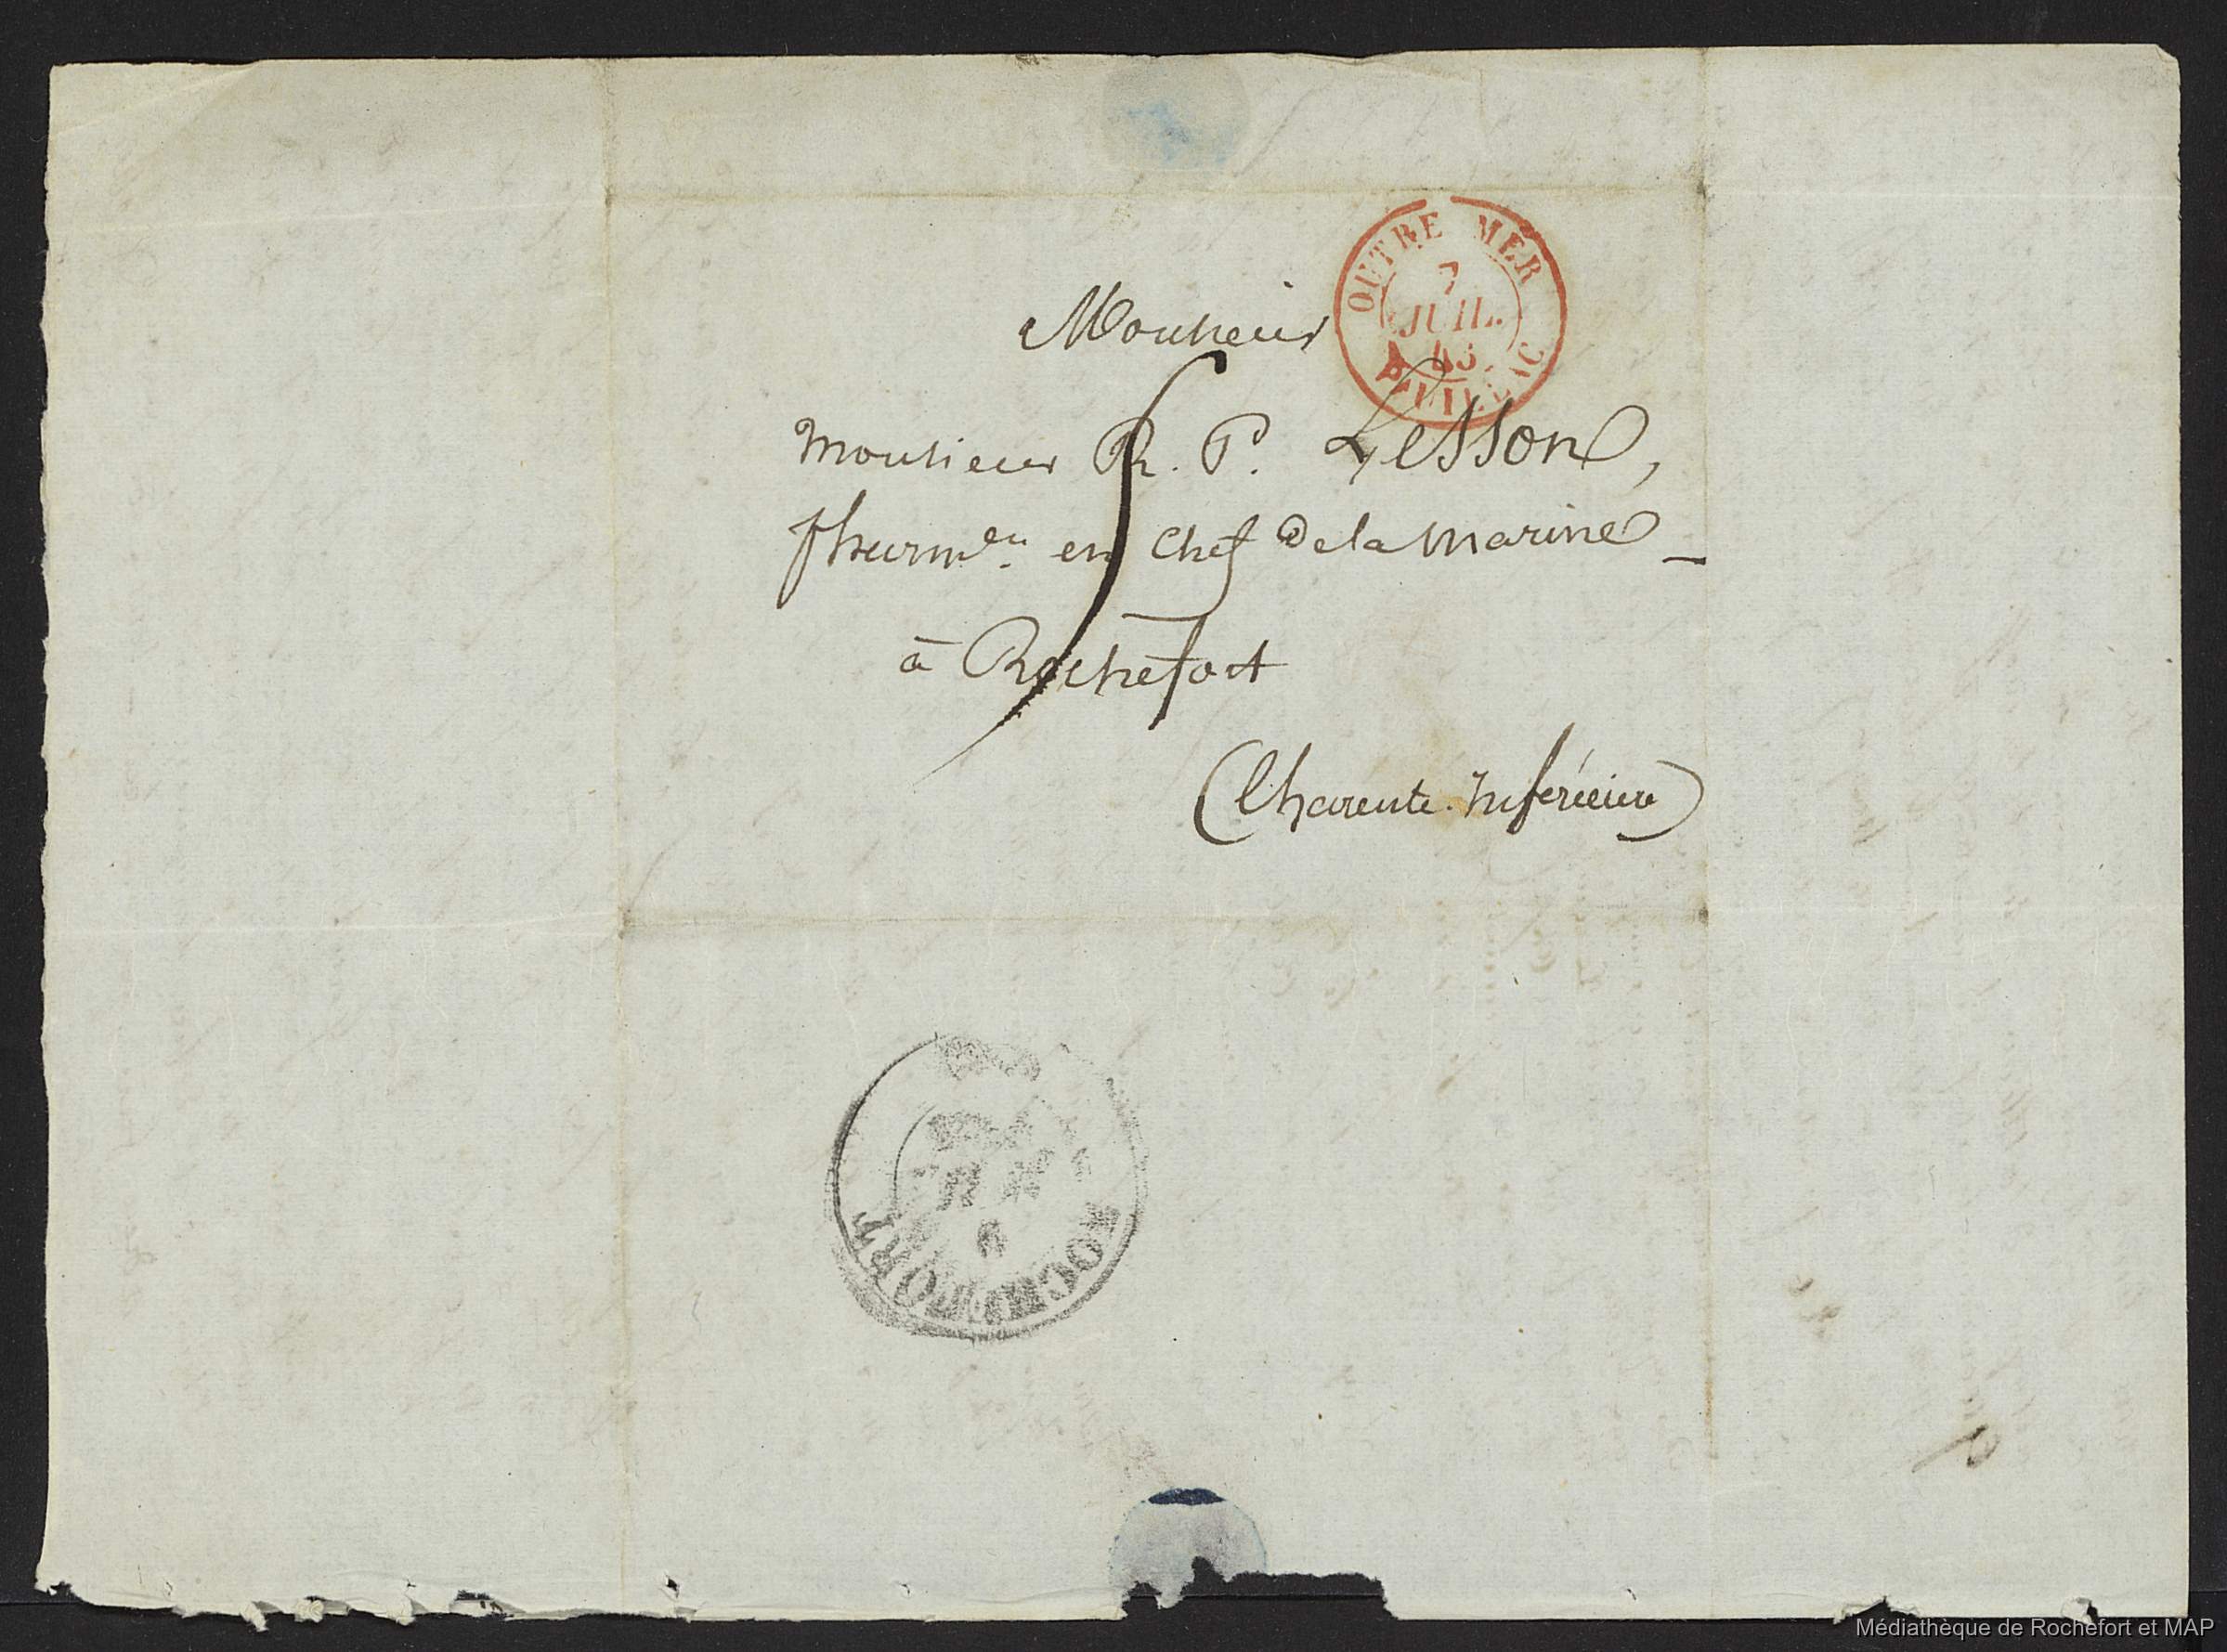 OUTRE MER
7
JUIL.
43
Monsieur
Monsieur R. P. Lesson,
pharm.en en chef de la marine
à Rochefort
(Charente-Inférieure)
9
ROCHEFORT
Médiathèque de Rochefort et MAP